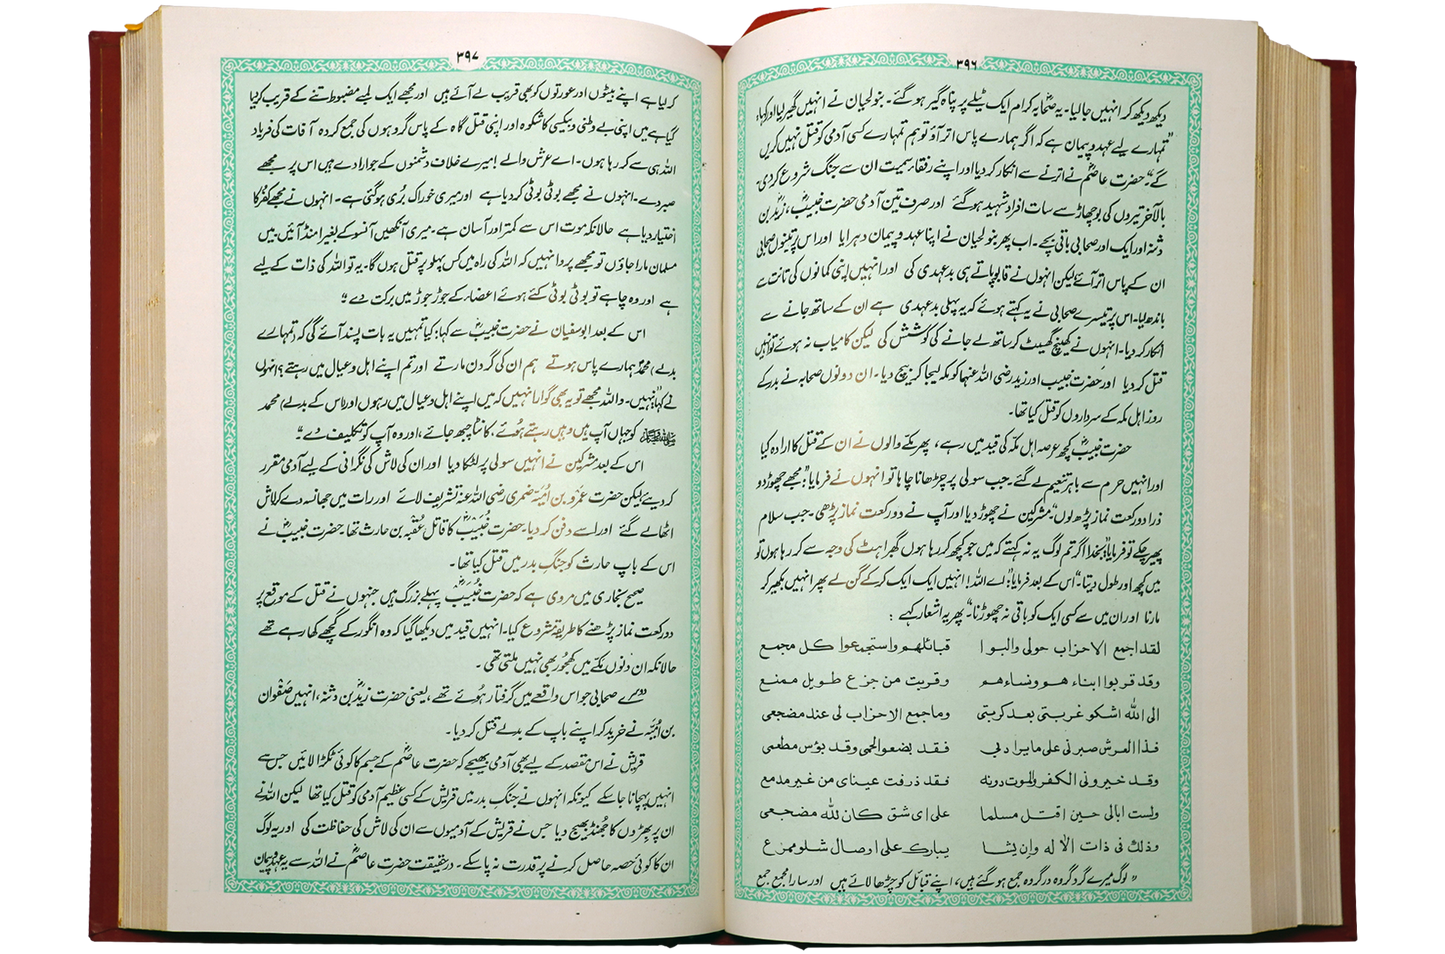 ۳۹۶
دیکھ دیکھ کر انہیں جا لیا۔ یہ صحابہ کرام ایک ٹیلے پر پناہ گیر ہوگئے۔ بنو لحیان نے انہیں گھیر لیا اور کہا،
"تمہارے لیے عہد و پیمان ہے کہ اگر ہمارے پاس اتر آؤ تو ہم تمہارے کسی آدمی کو قتل نہیں کریں
گے"۔ حضرت عاصمؓ نے اترنے سے انکار کر دیا اور اپنے رفقاء سمیت ان سے جنگ شروع کر دی۔
بالآخر تیروں کی بوچھاڑ سے سات افراد شہید ہوگئے اور صرف تین آدمی حضرت خبیبؓ، زیدؓ بن
دثنہ اور ایک اور صحابی باقی بچے۔ اب پھر بنو لحیان نے اپنا عہد و پیمان دہرایا اور اس پر تینوں صحابی
ان کے پاس اتر آئے لیکن انہوں نے قابو پاتے ہی بدعہدی کی اور انہیں اپنی کمانوں کی تانت سے
باندھ لیا۔ اس پر تیسرے صحابی نے یہ کہتے ہوئے کہ یہ پہلی بدعہدی ہے ان کے ساتھ جانے سے
انکار کر دیا۔ انہوں نے کھینچ گھسیٹ کر ساتھ لے جانے کی کوشش کی لیکن کامیاب نہ ہوئے تو انہیں
قتل کر دیا اور حضرت خبیب اور زید رضی اللہ عنہما کو مکہ لیجا کر بیچ دیا۔ ان دونوں صحابہ نے بدر کے
روز اہل مکہ کے سرداروں کو قتل کیا تھا۔
حضرت خبیبؓ کچھ عرصہ اہل مکہ کی قید میں رہے، پھر مکے والوں نے ان کے قتل کا ارادہ کیا
اور انہیں حرم سے باہر تنعیم لے گئے۔ جب سولی پر چڑھانا چاہا تو انہوں نے فرمایا: "مجھے چھوڑ دو
ذرا دو رکعت نماز پڑھ لوں"۔ مشرکین نے چھوڑ دیا اور آپ نے دو رکعت نماز پڑھی۔ جب سلام
پھیر چکے تو فرمایا: "بخدا اگر تم لوگ یہ نہ کہتے کہ میں جو کچھ کر رہا ہوں گھبراہٹ کی وجہ سے کر رہا ہوں تو
میں کچھ اور طول دیتا"۔ اس کے بعد فرمایا: "اے اللہ! انہیں ایک ایک کرکے گن لے پھر انہیں بکھیر کر
مارنا اور ان میں سے کسی ایک کو باقی نہ چھوڑنا"۔ پھر یہ اشعار کہے :
لقد اجمع الاحزاب حولی والبوا قبائلھم واستجمعوا کل مجمع
وقد قربوا ابناءھم ونساءھم وقربت من جزع طویل ممنع
الی اللہ اشکو غربتی بعد کربتی وما جمع الاحزاب لی عند مضجعی
فذا العرش صبرنی علی ما یراد بی فقد بضعوا لحمی وقد بؤس مطعمی
وقد خیرونی الکفر والموت دونہ فقد ذرفت عینای من غیر مدمع
ولست ابالی حین اقتل مسلما علی ای شق کان للہ مضجعی
وذلک فی ذات الالہ وان یشا یبارک علی اوصال شلو ممزع
" لوگ میرے گرد گروہ در گروہ جمع ہوگئے ہیں، اپنے قبائل کو چڑھا لائے ہیں اور سارا مجمع جمع
۳۹۷
کر لیا ہے اپنے بیٹوں اور عورتوں کو بھی قریب لے آئے ہیں اور مجھے ایک لمبے مضبوط تنے کے قریب کر دیا
گیا ہے میں اپنی بے وطنی و بیکسی کا شکوہ اور اپنی قتل گاہ کے پاس گروہوں کی جمع کردہ آفات کی فریاد
اللہ ہی سے کر رہا ہوں۔ اے عرش والے! میرے خلاف دشمنوں کے جو ارادے ہیں اس پر مجھے
صبر دے۔ انہوں نے مجھے بوٹی بوٹی کر دیا ہے اور میری خوراک بُری ہوگئی ہے۔ انہوں نے مجھے کفر کا
اختیار دیا ہے حالانکہ موت اس سے کمتر اور آسان ہے۔ میری آنکھیں آنسو کے بغیر امنڈ آئیں۔ میں
مسلمان مارا جاؤں تو مجھے پروا نہیں کہ اللہ کی راہ میں کس پہلو پر قتل ہوں گا۔ یہ تو اللہ کی ذات کے لیے
ہے اور وہ چاہے تو بوٹی بوٹی کئے ہوئے اعضاء کے جوڑ جوڑ میں برکت دے"۔
اس کے بعد ابوسفیان نے حضرت خبیبؓ سے کہا: کیا تمہیں یہ بات پسند آئے گی کہ (تمہارے
بدلے) محمدؐ ہمارے پاس ہوتے ہم ان کی گردن مارتے اور تم اپنے اہل و عیال میں رہتے؟ انہوں
نے کہا "نہیں۔ واللہ مجھے تو یہ بھی گوارا نہیں کہ میں اپنے اہل و عیال میں رہوں اور (اس کے بدلے) محمد
ﷺ کو جہاں آپ ہیں وہیں رہتے ہوئے، کانٹا چبھ جائے، اور وہ آپ کو تکلیف دے"۔
اس کے بعد مشرکین نے انہیں سولی پر لٹکا دیا اور ان کی لاش کی نگرانی کے لیے آدمی مقرر
کر دیئے لیکن حضرت عمرو بن امیہ ضمری رضی اللہ عنہ تشریف لائے اور رات میں جھانسہ دے کر لاش
اٹھا لے گئے اور اسے دفن کر دیا۔ حضرت خبیبؓ کا قاتل عقبہ بن حارث تھا۔ حضرت خبیبؓ نے
اس کے باپ حارث کو جنگ بدر میں قتل کیا تھا۔
صحیح بخاری میں مروی ہے کہ حضرت خبیبؓ پہلے بزرگ ہیں جنہوں نے قتل کے موقع پر
دو رکعت نماز پڑھنے کا طریقہ شروع کیا۔ انہیں قید میں دیکھا گیا کہ وہ انگور کے گچھے کھا رہے تھے
حالانکہ ان دنوں مکے میں کھجور بھی نہیں ملتی تھی۔
دوسرے صحابی جو اس واقعے میں گرفتار ہوئے تھے، یعنی حضرت زیدؓ بن دثنہ، انہیں صفوان
بن امیہ نے خرید کر اپنے باپ کے بدلے قتل کر دیا۔
قریش نے اس مقصد کے لیے بھی آدمی بھیجے کہ حضرت عاصمؓ کے جسم کا کوئی ٹکڑا لائیں جس سے
انہیں پہچانا جا سکے کیونکہ انہوں نے جنگ بدر میں قریش کے کسی عظیم آدمی کو قتل کیا تھا لیکن اللہ نے
ان پر بھڑوں کا جھنڈ بھیج دیا جس نے قریش کے آدمیوں سے ان کی لاش کی حفاظت کی اور یہ لوگ
ان کا کوئی حصہ حاصل کرنے پر قدرت نہ پا سکے۔ درحقیقت حضرت عاصمؓ نے اللہ سے یہ عہد و پیمان